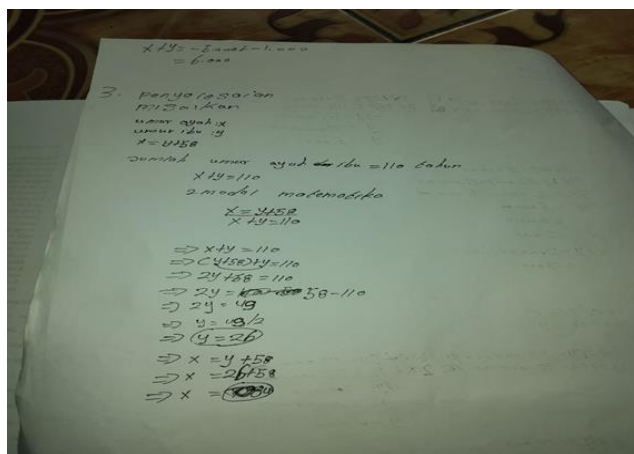 x+y = -5.000 - 1.000
= 6.000
3. Penyelesaian
misalkan
umur ayah : x
umur ibu : y
x = y+58
Jumlah umur ayah ibu = 110 tahun
x+y = 110
2 model matematika
x = y+58
x+y = 110
⇒ x+y = 110
⇒ (y+58)+y = 110
⇒ 2y+58 = 110
⇒ 2y = 58-110
⇒ 2y = 49
⇒ y = 49/2
⇒ y = 26
⇒ x = y+58
⇒ x = 26+58
⇒ x =